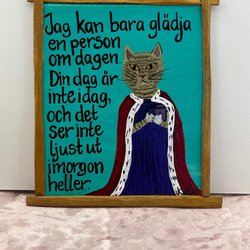 Jag kan bara glädja
en person
om dagen.
Din dag är
inte idag,
och det
ser inte
ljust ut
imorgon
heller.